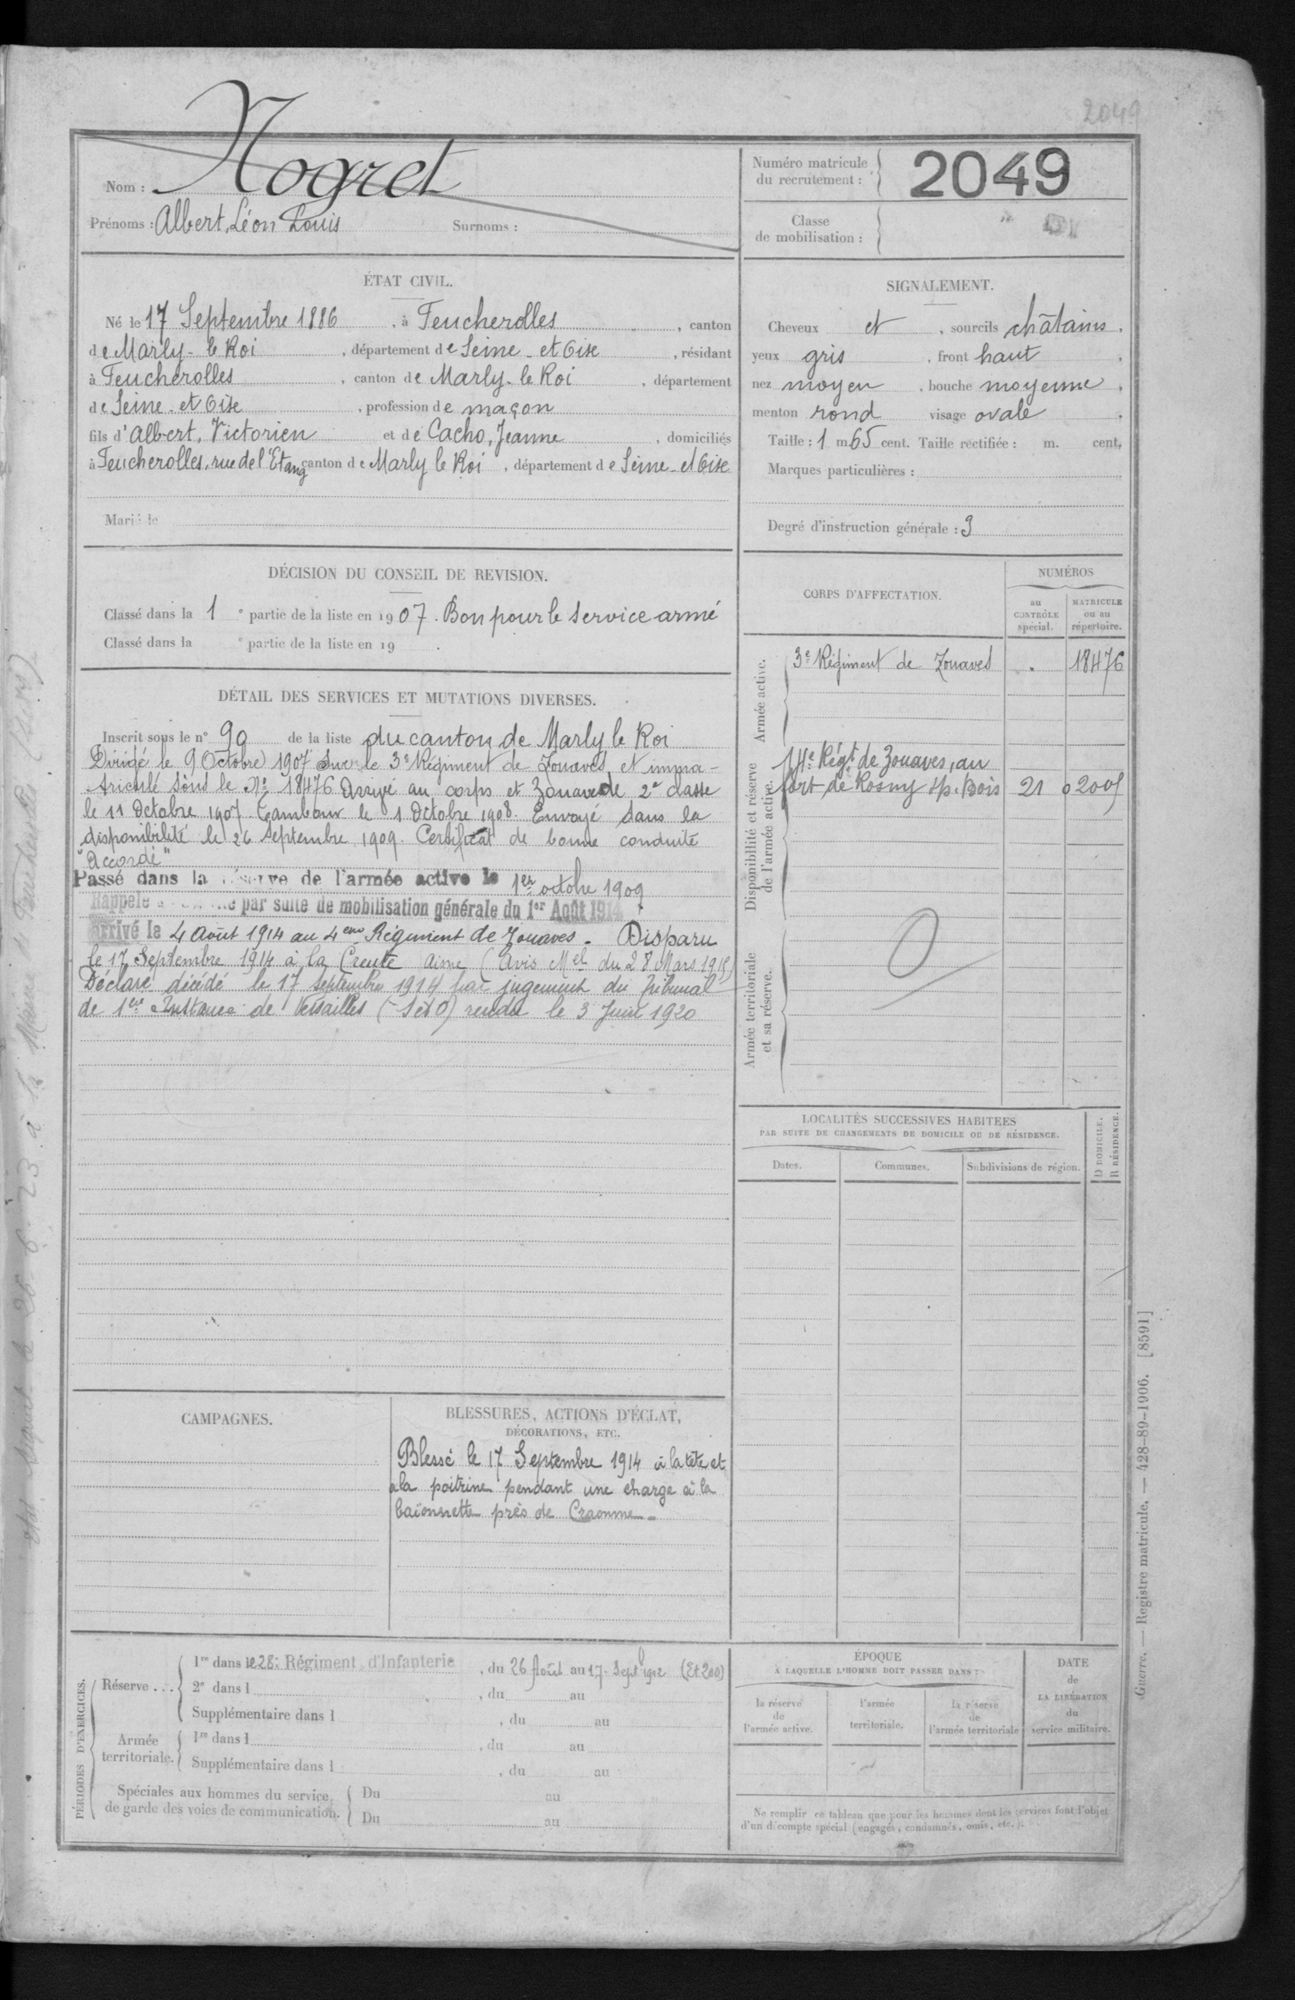 2049
Nom : Nogret
Prénoms : Albert, Léon Louis Surnoms :
Numéro matricule du recrutement : 2049
Classe de mobilisation :
ÉTAT CIVIL.
Né le 17 Septembre 1886, à Feucherolles, canton
de Marly-le Roi, département de Seine-et Oise, résidant
à Feucherolles, canton de Marly-le Roi, département
de Seine-et Oise, profession de maçon
fils d'Albert, Victorien et de Cacho, Jeanne, domiciliés
à Feucherolles, rue de l'Etang canton de Marly le Roi, département de Seine-et Oise
Marié le
SIGNALEMENT.
Cheveux et, sourcils châtains.
yeux gris, front haut,
nez moyen, bouche moyenne,
menton rond visage ovale.
Taille : 1 m 65 cent. Taille rectifiée : m. cent.
Marques particulières :
Degré d'instruction générale : 3
DÉCISION DU CONSEIL DE REVISION.
Classé dans la 1e partie de la liste en 1907. Bon pour le service armé
Classé dans la e partie de la liste en 19 .
DÉTAIL DES SERVICES ET MUTATIONS DIVERSES.
Inscrit sous le n° 90 de la liste du canton de Marly le Roi
Dirigé le 9 Octobre 1907 sur le 3e Régiment de Zouaves et imma-
triculé sous le No 18476 Arrivé au corps et Zouave de 2e classe
le 11 Octobre 1907 Tambour le 1 Octobre 1908. Envoyé dans la
disponibilité le 26 Septembre 1909. Certificat de bonne conduite
"Accordé"
Passé dans la réserve de l'armée active le 1er octobre 1909
Rappelé par suite de mobilisation générale du 1er Août 1914
Arrivé le 4 Août 1914 au 4eme Régiment de Zouaves. Disparu
le 17 Septembre 1914 à la Creute Aisne (Avis Mel du 28 Mars 1915)
Déclaré décédé le 17 septembre 1914 par jugement du Tribunal
de 1ere Instance de Versailles (S et O) rendu le 3 Juin 1920
CORPS D'AFFECTATION.
NUMÉROS
au CONTRÔLE spécial.
MATRICULE ou au répertoire.
Armée active.
3e Régiment de Zouaves . 18476
Disponibilité et réserve de l'armée active.
14e Régt de Zouaves, au
fort de Rosny s/s-Bois 21 02005
Armée territoriale et sa réserve.
LOCALITÉS SUCCESSIVES HABITEES
PAR SUITE DE CHANGEMENTS DE DOMICILE OU DE RÉSIDENCE.
Dates. Communes. Subdivisions de région.
D DOMICILE. R RÉSIDENCE.
CAMPAGNES.
BLESSURES, ACTIONS D'ÉCLAT,
DÉCORATIONS, ETC.
Blessé le 17 Septembre 1914 à la tête et
à la poitrine pendant une charge à la
baïonnette près de Craonne.
PÉRIODES D'EXERCICES.
Réserve... 1re dans le 28e Régiment d'Infanterie, du 26 Août au 17 Sept 1912 (Et 200)
2e dans l , du au
Supplémentaire dans l , du au
Armée territoriale. 1re dans l , du au
Supplémentaire dans l , du au
Spéciales aux hommes du service de garde des voies de communication. Du au
Du au
ÉPOQUE
À LAQUELLE L'HOMME DOIT PASSER DANS :
la réserve de l'armée active.
l'armée territoriale.
la réserve de l'armée territoriale
DATE de LA LIBÉRATION du service militaire.
Ne remplir ce tableau que pour les hommes dont les services font l'objet
d'un décompte spécial (engagés, condamnés, omis, etc.).
Guerre. — Registre matricule. — 428-89-1906. [8591]